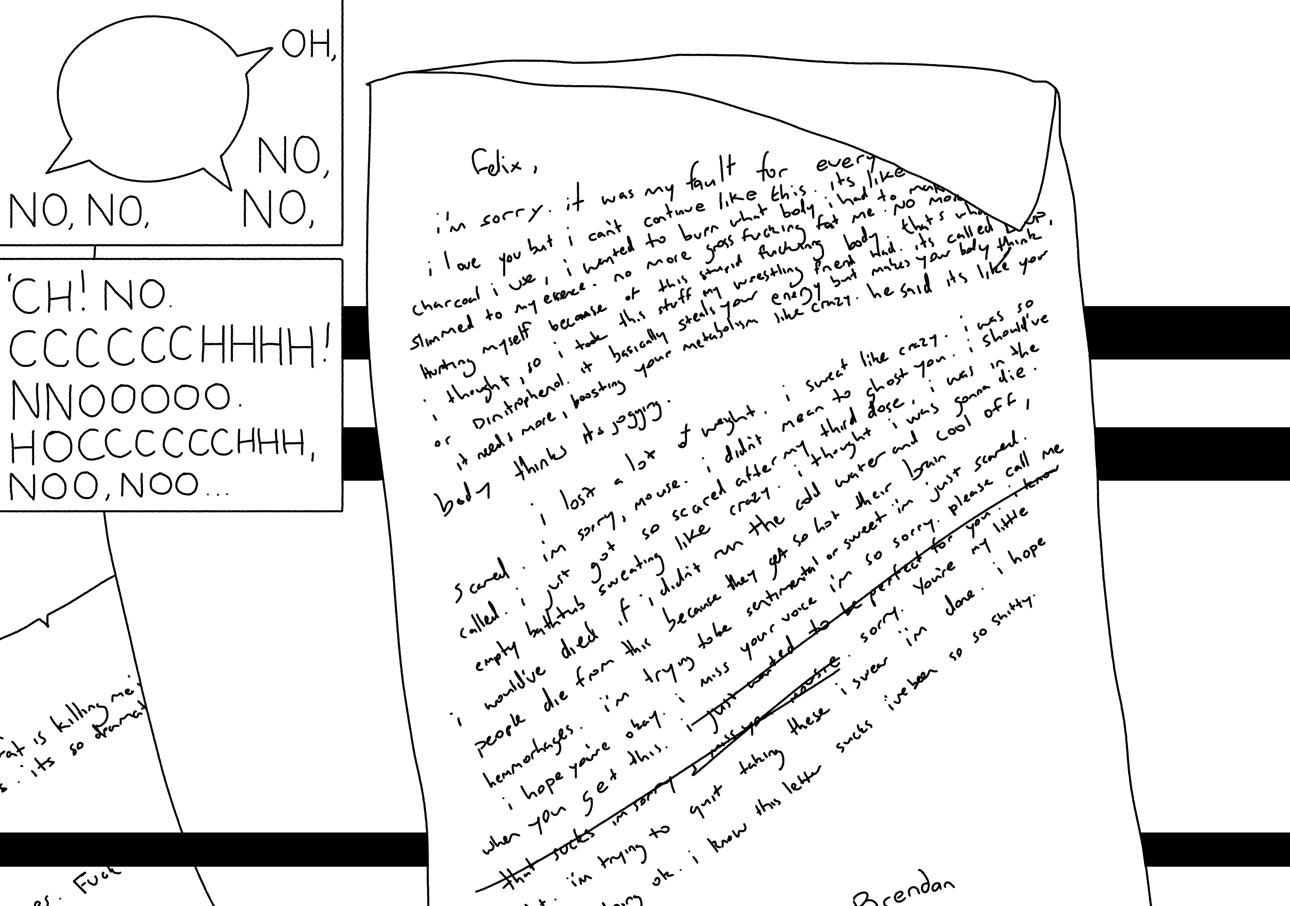 OH,
NO,
NO, NO,
NO,
'CH! NO.
CCCCCCHHHH!
NNOOOOO.
HOCCCCCCHHH,
NOO, NOO...
Felix,
i'm sorry. it was my fault for every
i love you but i can't continue like this. its like
charcoal i use, i wanted to burn what body i had to
slimmed to my essence. no more gross fucking fat me. no more
hurting myself because of this stupid fucking body. that's what
i thought, so i took this stuff my wrestling friend had. its called
or Dinitrophenol. it basically steals your energy but makes your body think
it needs more, boosting your metabolism like crazy. he said its like your
body thinks its jogging.
i lost a lot of weight. i sweat like crazy. i was so
scared. im sorry, mouse. i didn't mean to ghost you. i should've
called. i just got so scared after my third dose, i was in the
empty bathtub sweating like crazy. i thought i was gonna die.
i would've died if i didn't run the cold water and cool off,
people die from this because they get so hot their brain
hemmorhages. i'm trying to be sentimental or sweet i'm just scared.
i hope you're okay. i miss your voice i'm so sorry. please call me
when you get this. i just wanted to be perfect for you i know
that sucks im sorry i miss you mousie. sorry. You're my little
i'm trying to quit taking these i swear i'm done. i hope
ok. i know this letter sucks ive been so so shitty.
Brendan
is killing me
s. its so dramat
es. Fuck